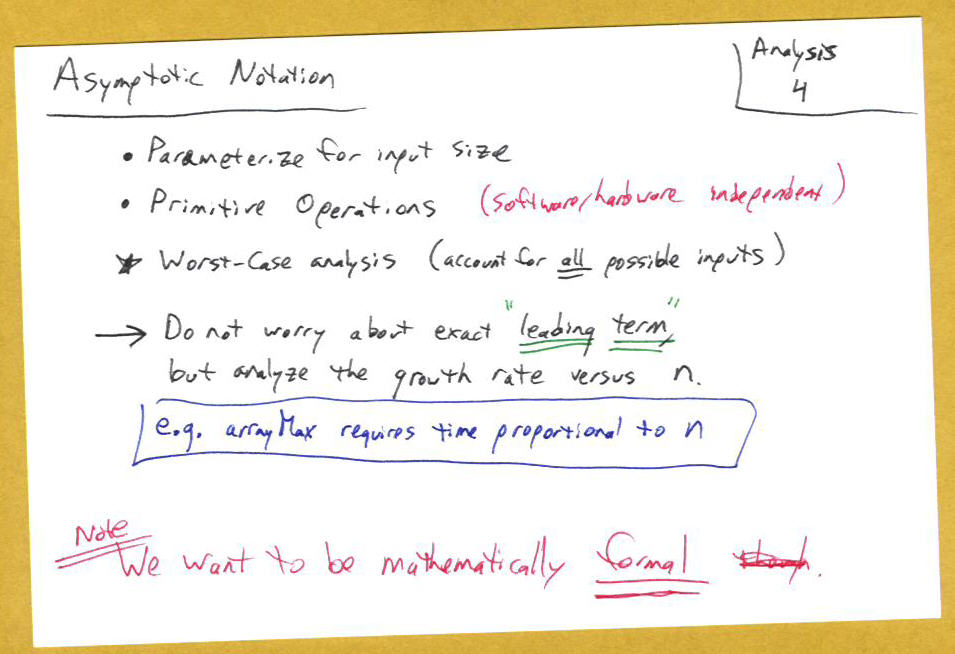 Asymptotic Notation
Analysis
4
• Parameterize for input size
• Primitive Operations (software/hardware independent)
★ Worst-Case analysis (account for all possible inputs)
→ Do not worry about exact "leading term"
but analyze the growth rate versus n.
e.g. arrayMax requires time proportional to n
Note
We want to be mathematically formal .